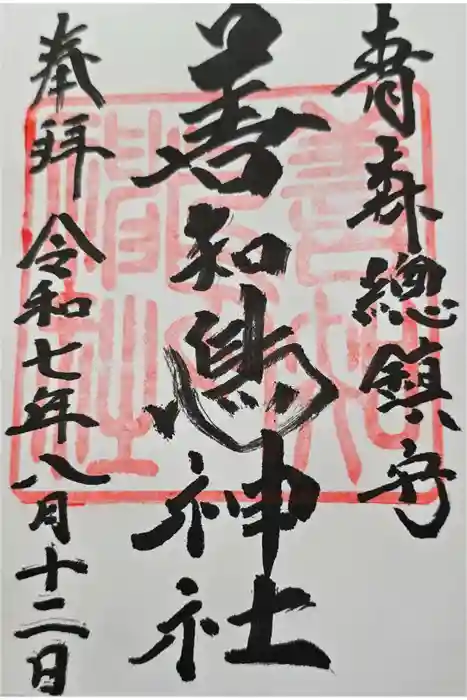 青森總鎮守
善知鳥神社
奉拜
令和七年八月十二日